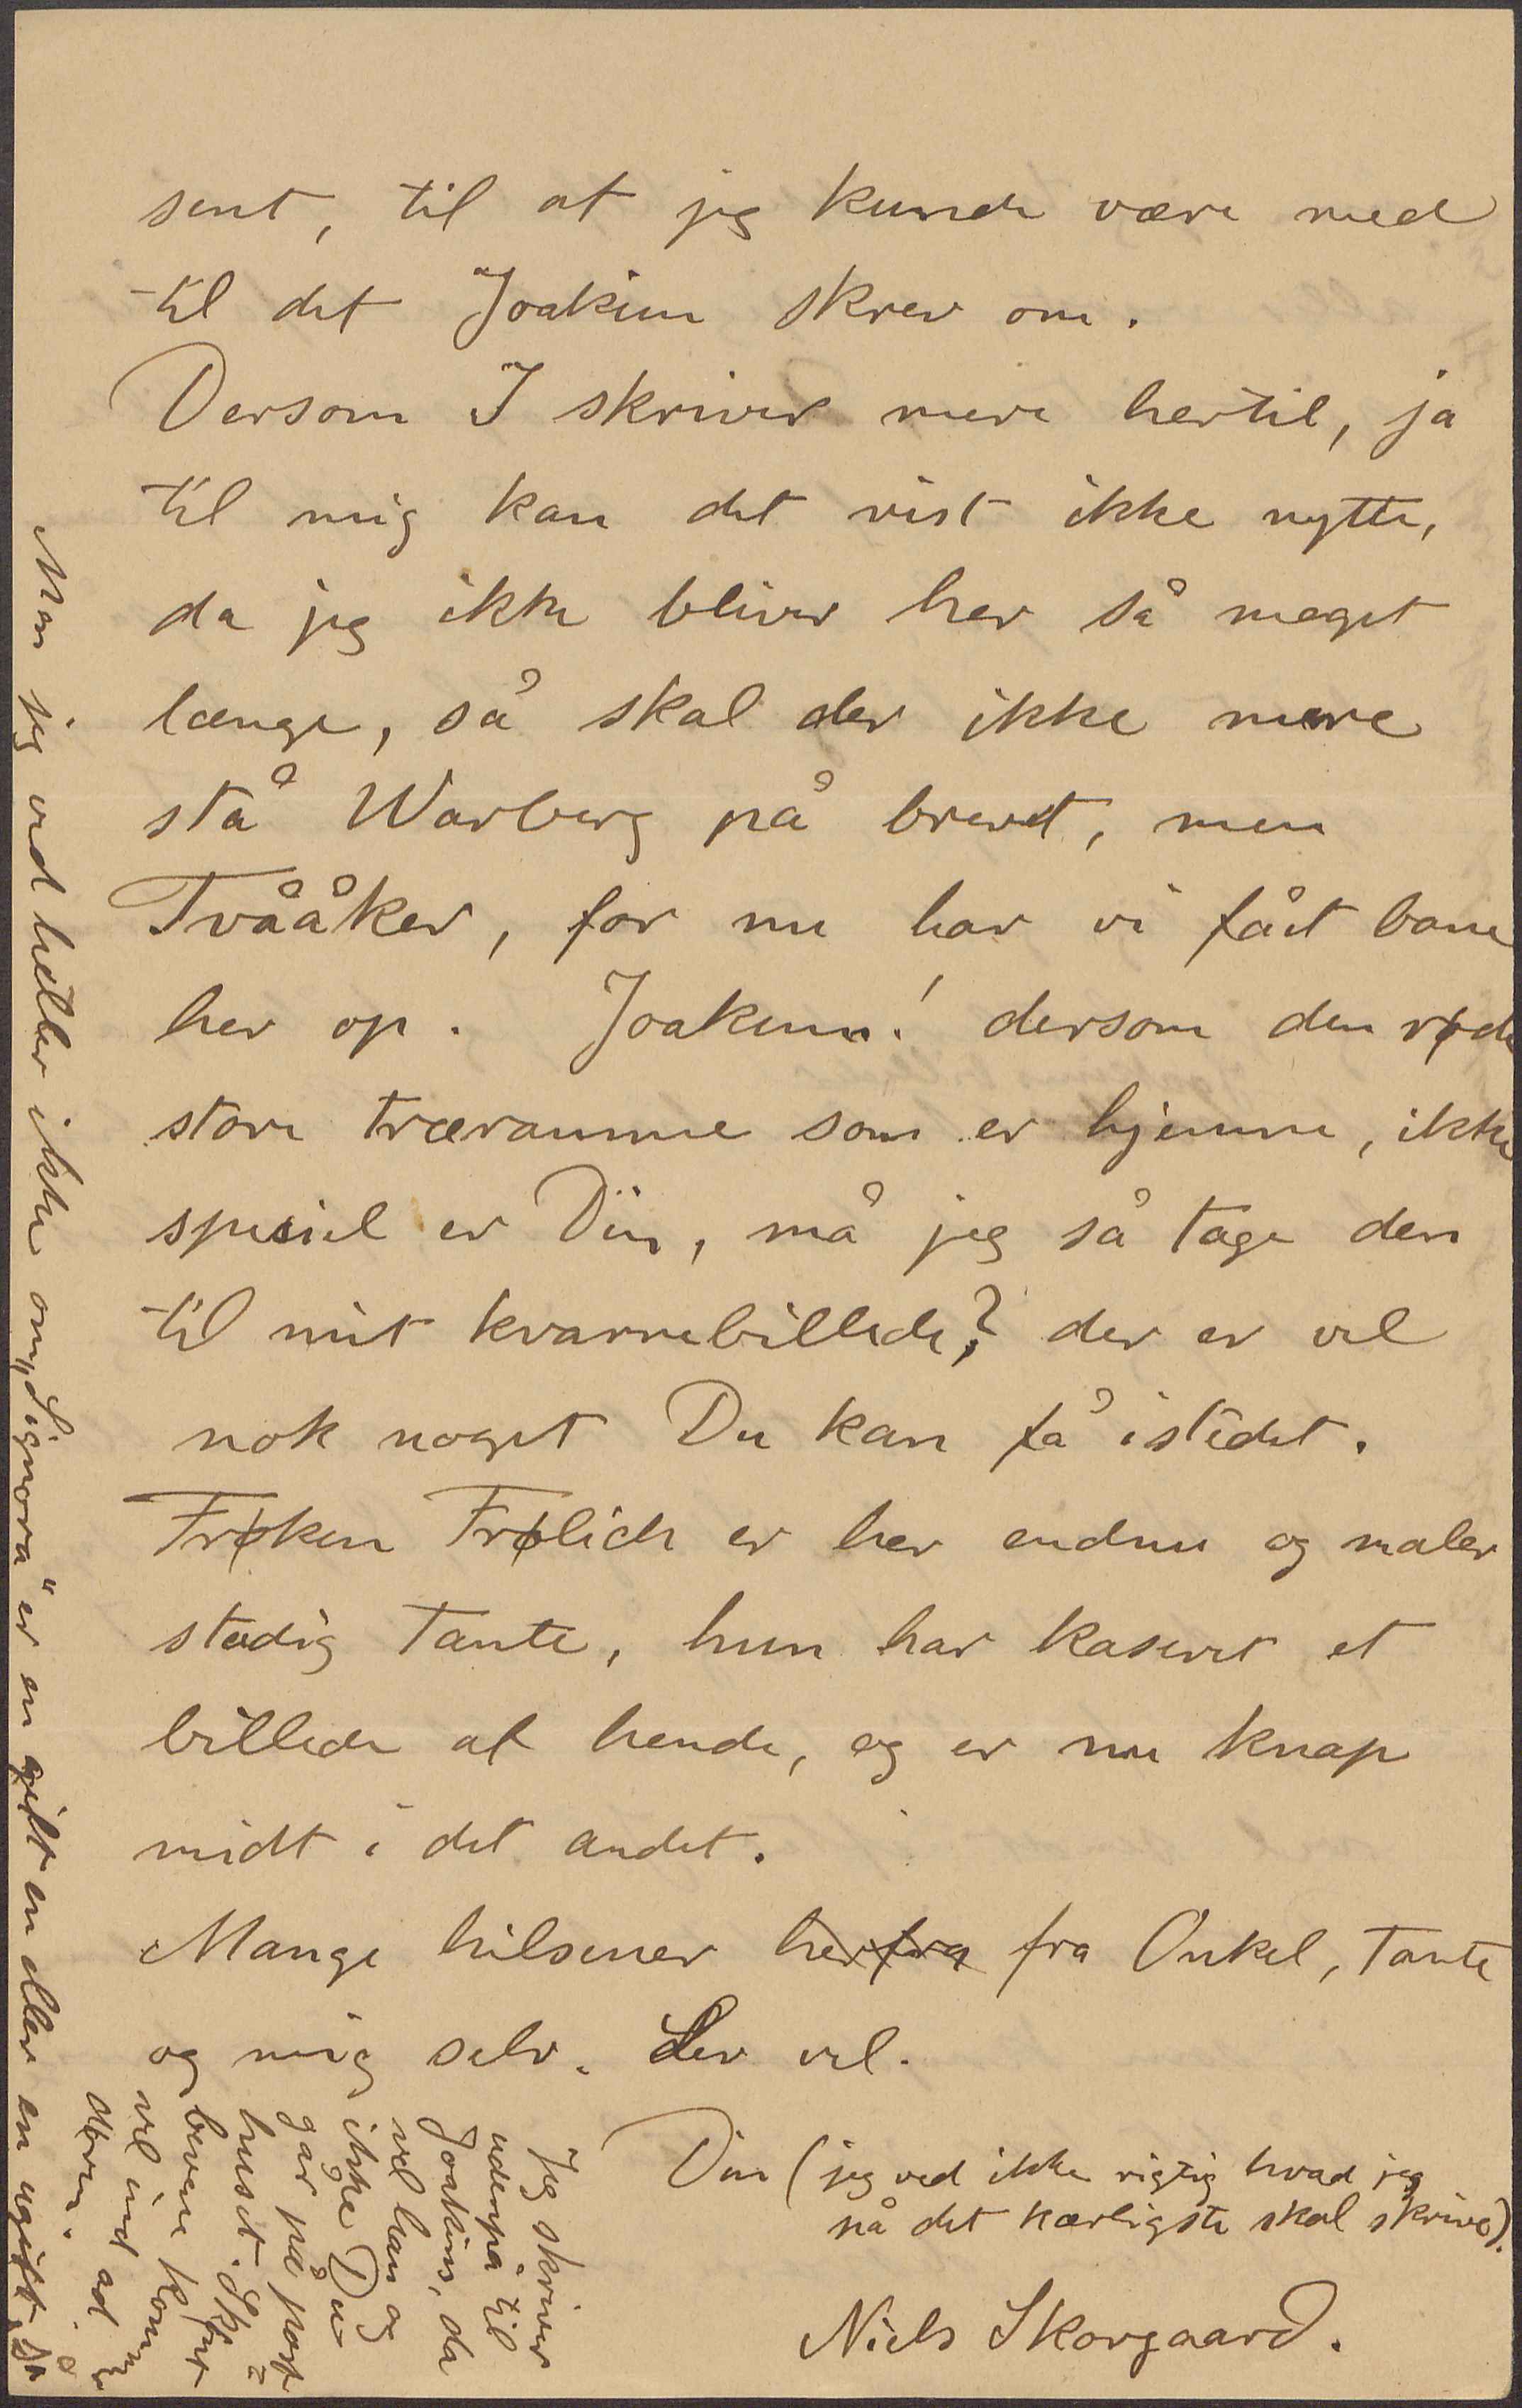 sent, til at jeg kunde være med
til det Joakim skrev om.
Dersom I skriver mere hertil, ja
til mig kan det vist ikke nytte,
da jeg ikke bliver her så meget
længe, så skal der ikke mere
stå Warberg på brevet, men
Tvååker, for nu har vi fået bane
her op. Joakim! dersom den røde
store træramme som er hjemme, ikke
spesiel er Din, må jeg så tage den
til mit kvarnebillede? der er vel
nok noget Du kan få istedet.
Frøken Frølich er her endnu og maler
stadig Tante, hun har kaseret et
billede af hende, og er nu knap
midt i det andet.
Mange hilsener herfra fra Onkel, Tante
og mig selv. Lev vel.
Din (jeg ved ikke rigtig hvad jeg
på det kærligste skal skrive).
Niels Skovgaard.
Jeg skriver
udenpå til
Joakim, da
vel han og
ikke Du
går på post
huset.
bevare
vel ind ad
døren.
Men jeg ved heller ikke om „Signora" er en gift en eller en ugift, så